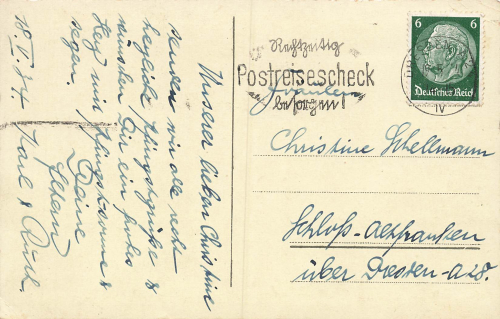 Unserer lieben Christine
senden wir alle recht
herzliche Pfingstgrüße &
wünschen Dir ein frohes
Herz mit Pfingstsonne &
segen.
Deine
Eltern
Karl & Ruth.
18. V. 34
Rechtzeitig
Postreisescheck
besorgen!
IV
6 6
Deutsches Reich
Fräulein
Christine Schellmann
Schloß-Altfranken
über Dresden-A 28.